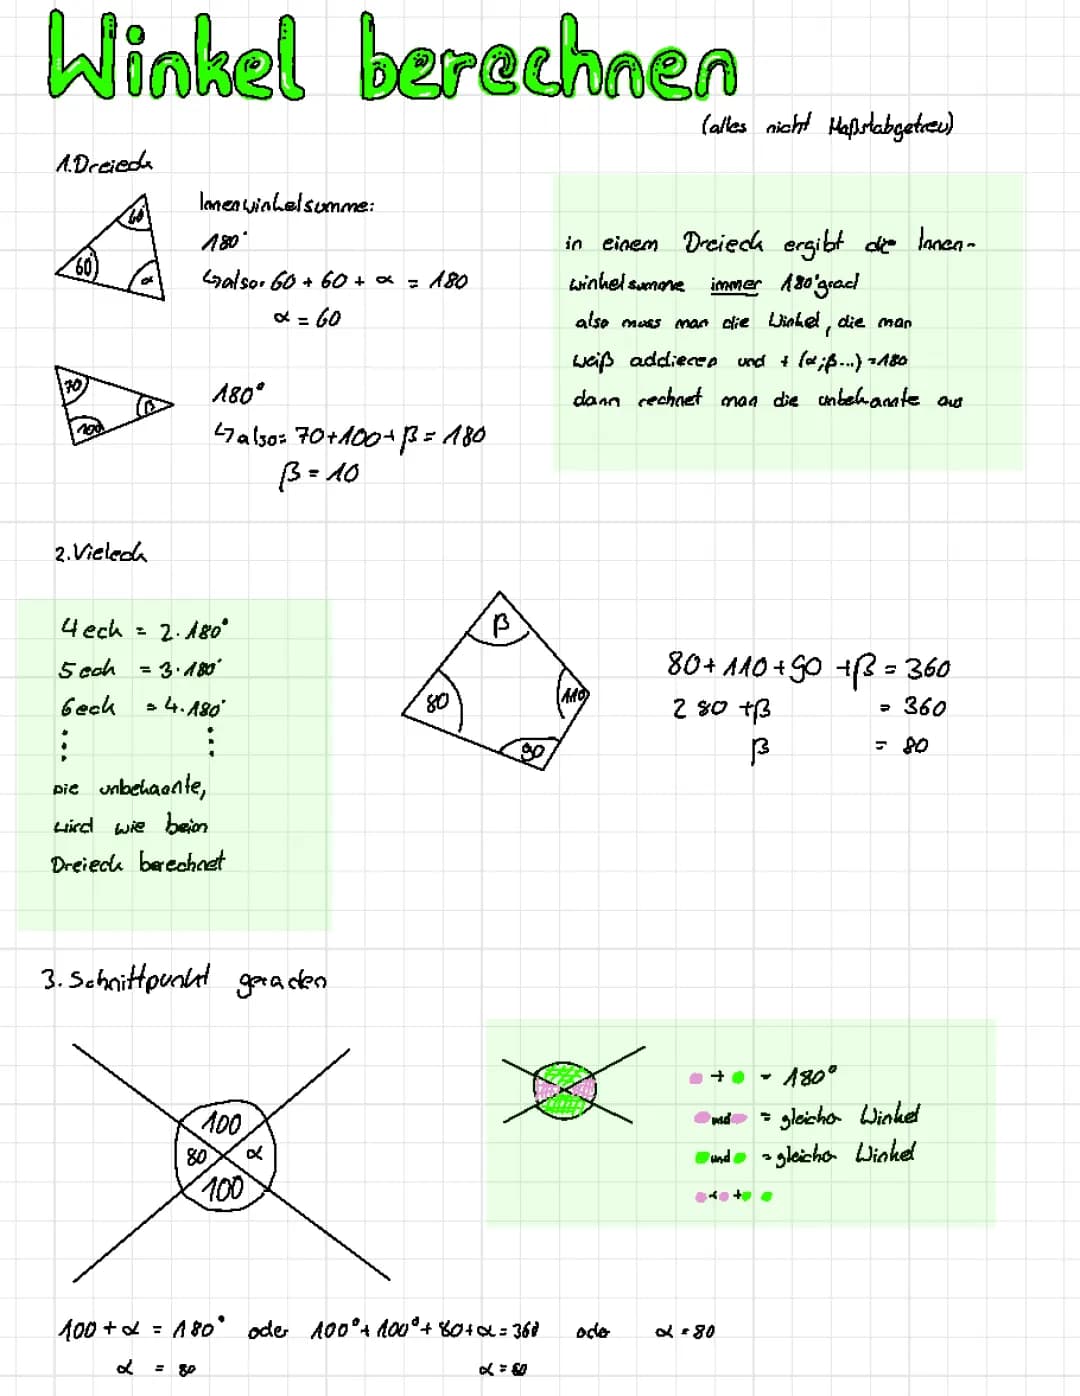 Winkel berechnen
(alles nicht Maßstabgetreu)
1.Dreieck
60
60
α
Innenwinkelsumme:
180°
↳also: 60 + 60 + α = 180
α = 60
in einem Dreieck ergibt die Innen-
winkelsumme immer 180°grad
also muss man die Winkel, die man
weiß addieren und + (α;β...) = 180
dann rechnet man die unbekannte aus
70
β
100
180°
↳also: 70+100+β = 180
β = 10
2.Vieleck
4 eck = 2·180°
5 eck = 3·180°
6 eck = 4·180°
Die unbekannte,
wird wie beim
Dreieck berechnet
β
80
110
90
80+110+90 +β = 360
280 +β = 360
β = 80
3. Schnittpunkt geraden
100
80 α
100
+ = 180°
und = gleicher Winkel
und = gleicher Winkel
100 + α = 180° oder 100° + 100° + 80 + α = 360 oder α = 80
α = 80 α = 80